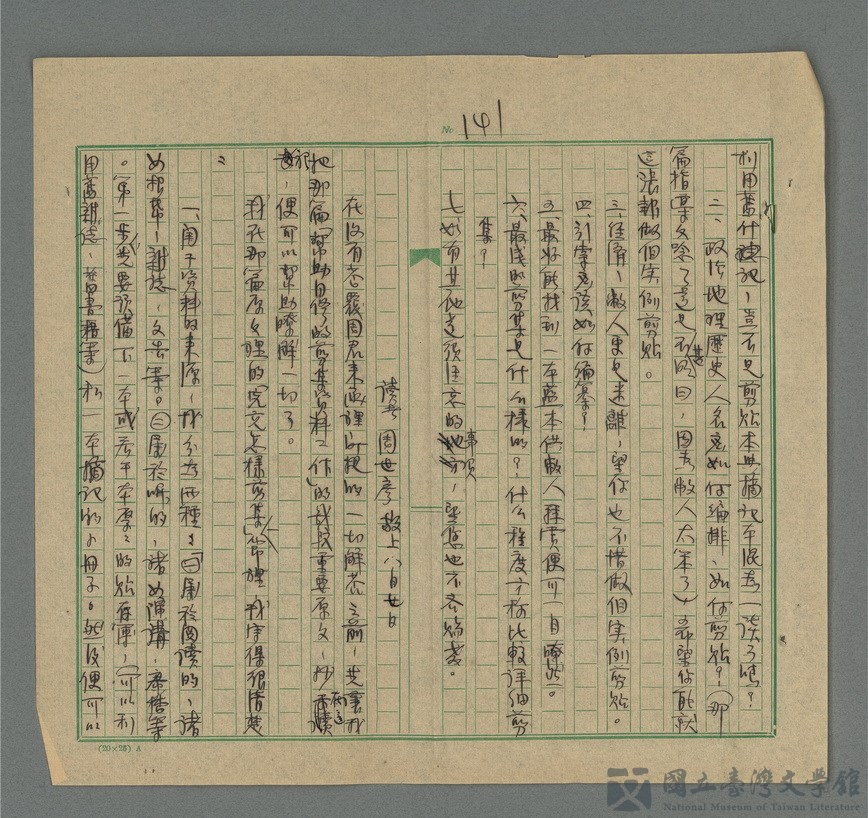 No 141
利用舊什誌記，豈不是剪貼本與摘記本混為一談了嗎？
二、政治地理歷史人名應如何編排、如何剪貼？（那
篇指某文察了還是不明白，因為敝人太笨了）希望你能就
這張報做個实例剪貼。
三、往看，敝人更是迷離，望你也不惜做個实例剪貼。
四、引索應該如何編纂？
五、最好能找到一本藍本供敝人釋賞便可一目瞭然。
六、最淺的剪集是什么樣的？什么程度才称比較詳細剪
集？
七、如有其他遗須注意的事項，望您也不吝賜教。
讀者 周世彥 敬上 八月廿日
在没有答覆周君来函裡所提的一切解答之前，先讓我
把那篇「幫助自修的剪集資料工作」的我院重要原文，抄在這
裡，便可以幫助瞭解一切了。
我在那篇原文裡的「究竟怎樣剪集」一節裡，我寫得很清楚
：
一、關于資料的来原，我分為兩種：㈠屬於閱讀的，諸
如报章、雜誌、文告等。㈡屬於听的，諸如演講、廣播等
。第一步先要預備下一本或若干本厚厚的貼存簿，（可以利
用舊雜誌、舊書籍等）和一本摘記的小冊子。然後便可以
(20×25) A
國立臺灣文學館
National Museum of Taiwan Literature